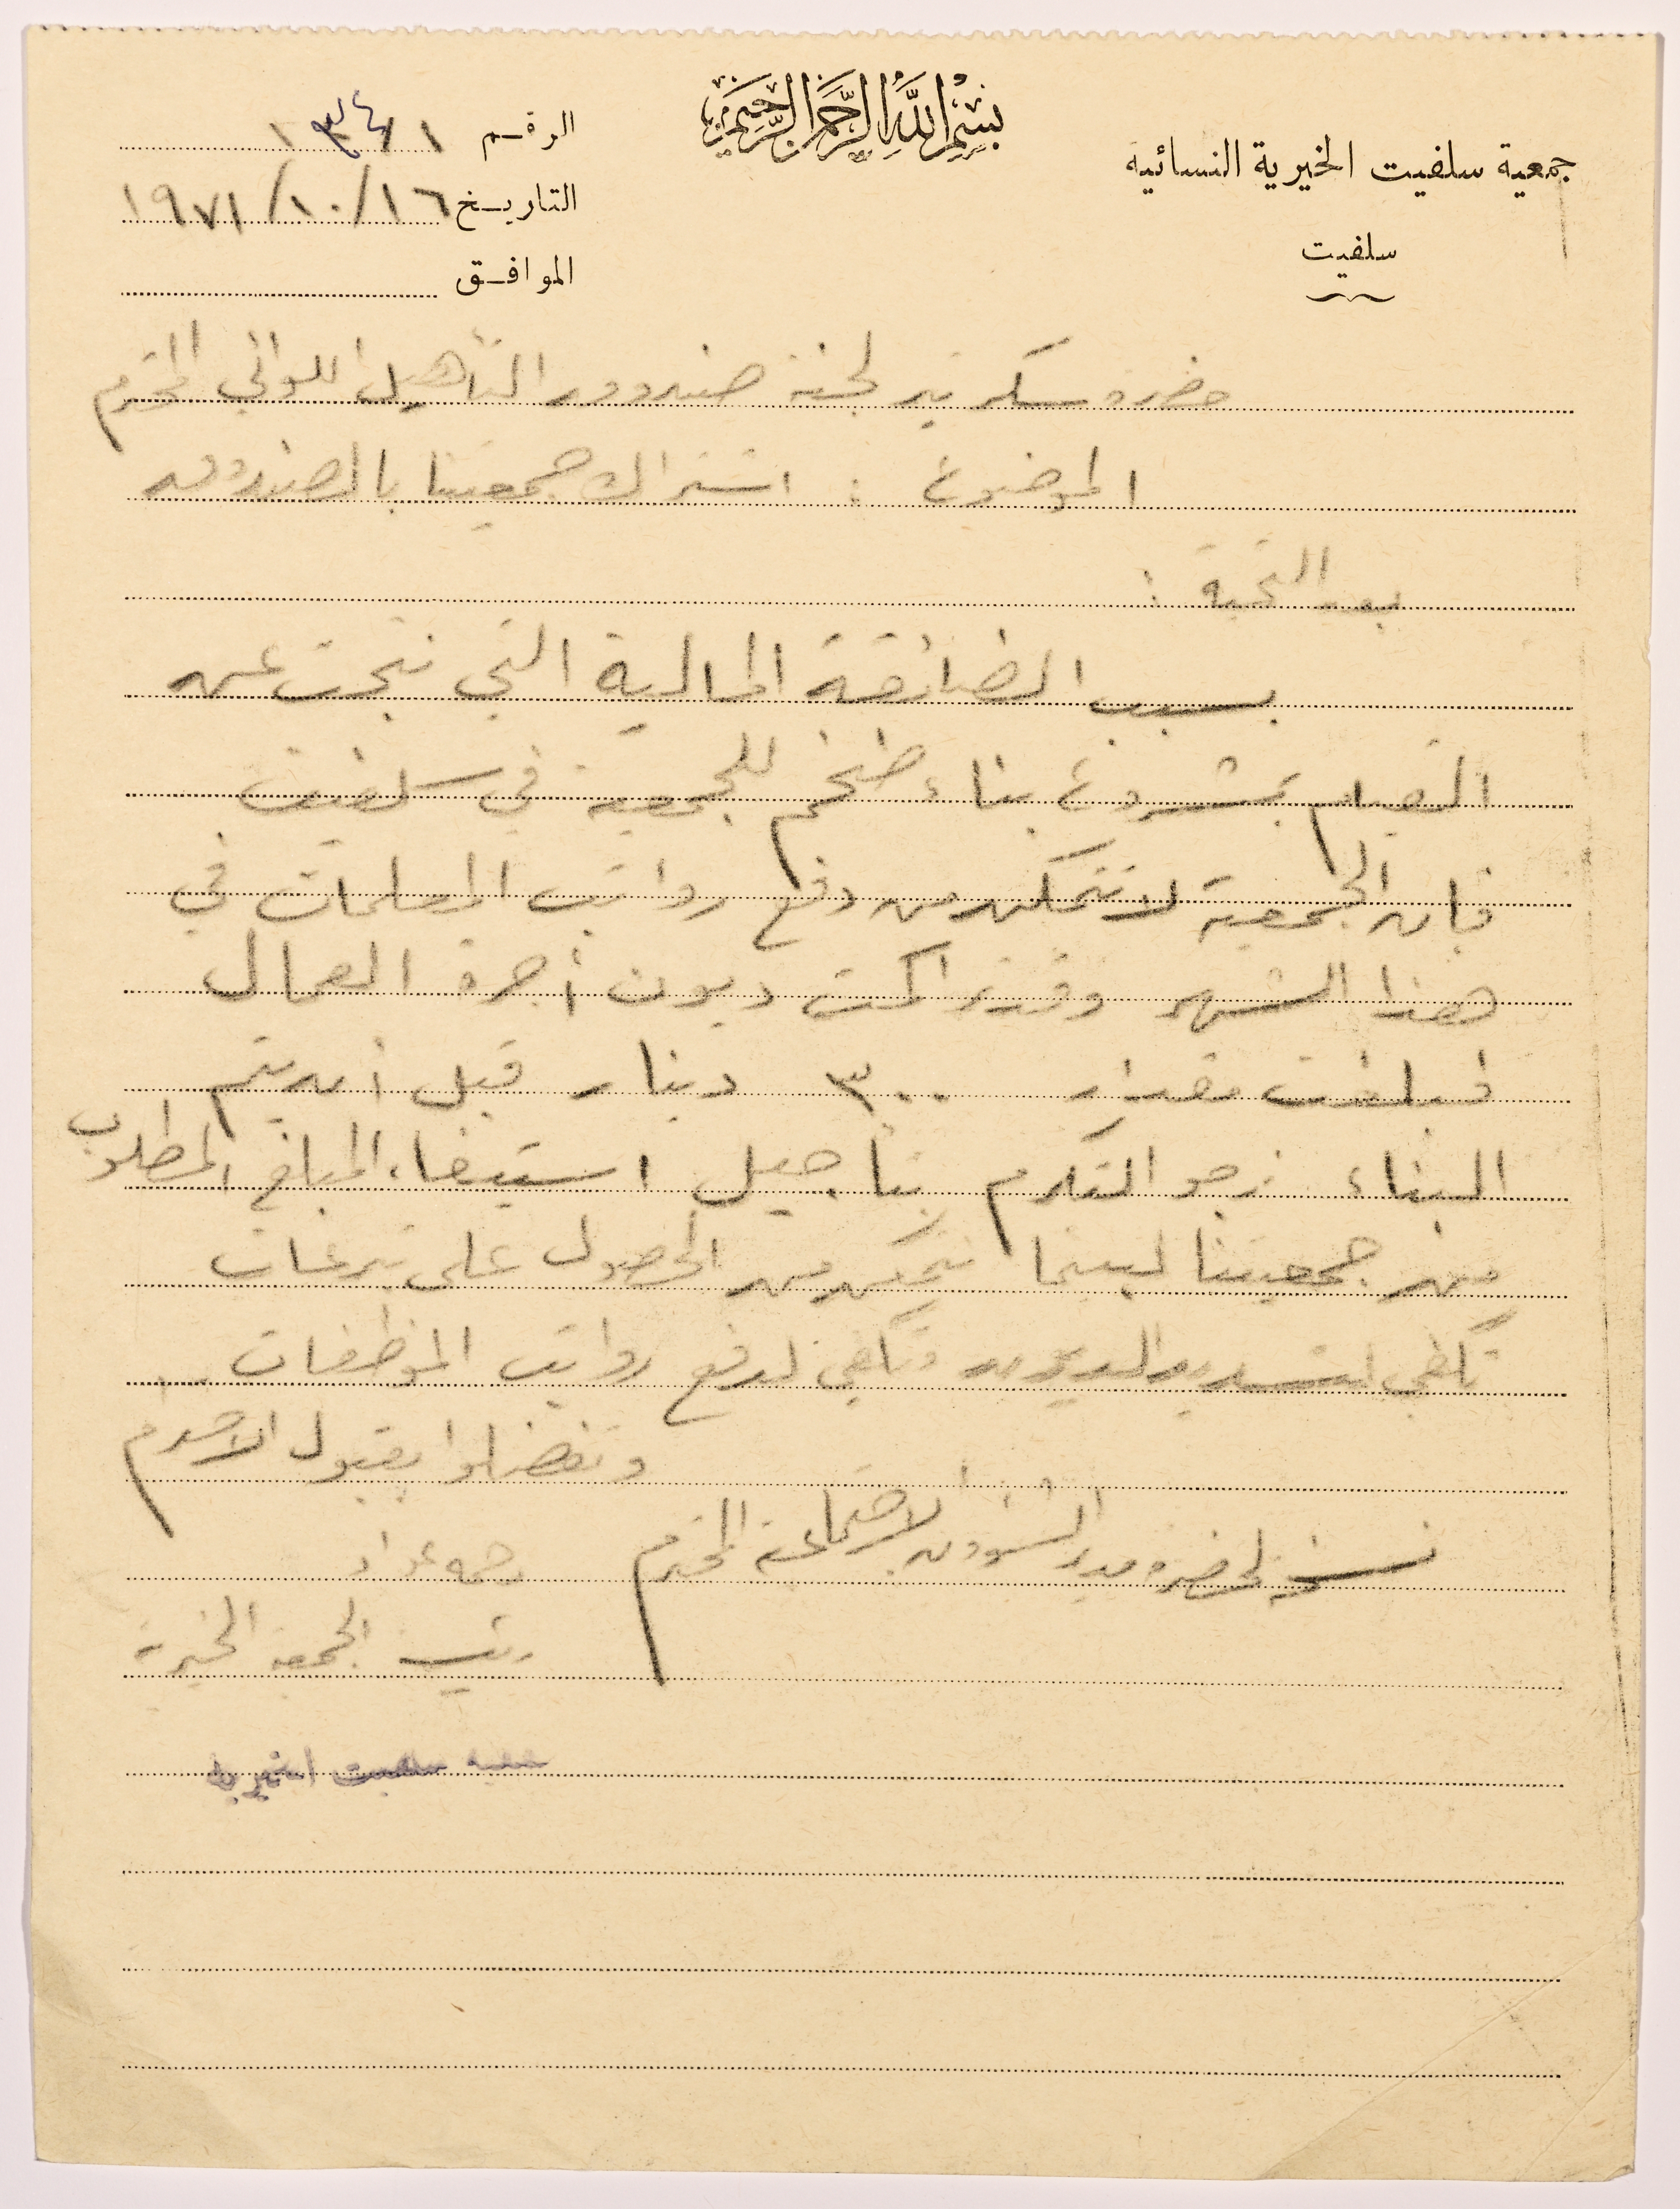 بسم الله الرحمن الرحيم
جمعية سلفيت الخيرية النسائية
سلفيت
الرقم
التاريخ ١٦/١٠/١٩٧١
الموافق
حضرة سكرتير لجنة صندوق التأهيل اللوائي المحترم
الموضوع : اشتراك جمعيتنا بالصندوق
بعد التحية :
بسبب الضائقة المالية التي نتجت عن
القيام بمشروع بناء ضخم للجمعية في سلفيت
فان الجمعية لا تتمكن من دفع رواتب المعلمات في
هذا الشهر وقد تراكمت ديون أجرة العمال
فبلغت مقدار ٣٠٠ دينار قبل أن يتم
البناء نرجو التكرم بتأجيل استيفاء المبلغ المطلوب
من جمعيتنا لبينما نتمكن من الحصول على تبرعات
تكفي لتسديد الديون وتكفي لدفع رواتب الموظفات ..
وتفضلوا بقبول الاحترام
نسخة لحضرة مدير الشؤون الاجتماعية المحترم
رئيسة الجمعية الخيرية